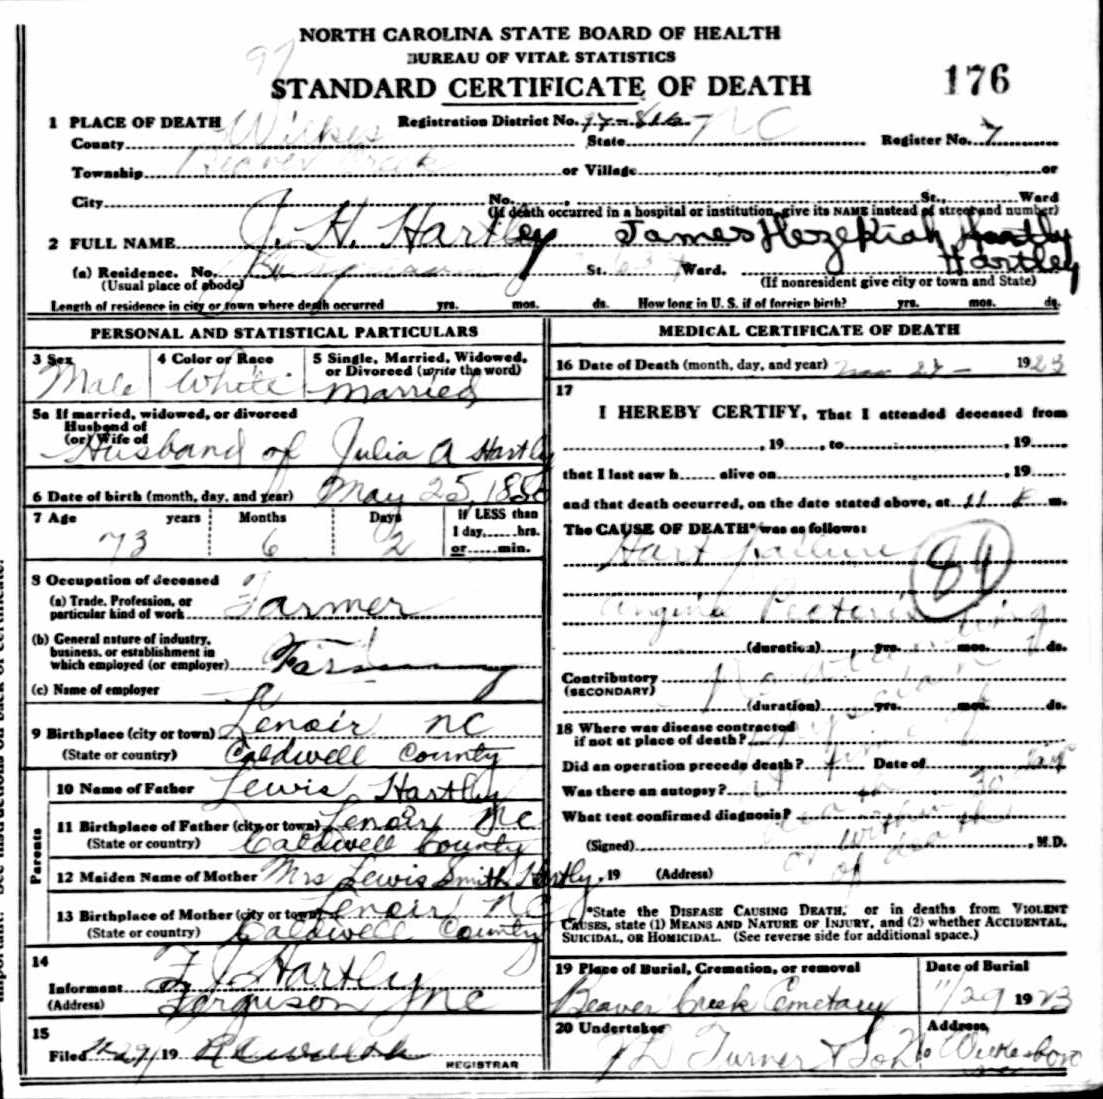 NORTH CAROLINA STATE BOARD OF HEALTH
BUREAU OF VITAL STATISTICS
STANDARD CERTIFICATE OF DEATH
97
176
1 PLACE OF DEATH
Registration District No.
County Wilkes State NC Register No. 7
Township Beaver Creek or Village or
City No. , St., Ward
(If death occurred in a hospital or institution, give its NAME instead of street and number)
2 FULL NAME J. H. Hartley James Hezekiah Hartley
Hartley
(a) Residence. No. St. Ward.
(Usual place of abode) (If nonresident give city or town and State)
Length of residence in city or town where death occurred yrs. mos. ds. How long in U. S. if of foreign birth? yrs. mos. ds.
PERSONAL AND STATISTICAL PARTICULARS
3 Sex Male
4 Color or Race White
5 Single, Married, Widowed, or Divorced (write the word) Married
5a If married, widowed, or divorced
Husband of
(or) Wife of Husband of Julia A Hartley
6 Date of birth (month, day, and year) May 25, 1850
7 Age years Months Days If LESS than
1 day, hrs.
73 6 2 or min.
8 Occupation of deceased
(a) Trade, Profession, or
particular kind of work Farmer
(b) General nature of industry,
business, or establishment in
which employed (or employer) Farming
(c) Name of employer
9 Birthplace (city or town) Lenoir NC
(State or country) Caldwell County
Parents
10 Name of Father Lewis Hartley
11 Birthplace of Father (city or town) Lenoir NC
(State or country) Caldwell County
12 Maiden Name of Mother Mrs Lewis Smith Hartley
13 Birthplace of Mother (city or town) Lenoir NC
(State or country) Caldwell County
14
Informant F J Hartley
(Address) Ferguson NC
15
Filed 19
REGISTRAR
MEDICAL CERTIFICATE OF DEATH
16 Date of Death (month, day, and year) Nov 27 - 1923
17
I HEREBY CERTIFY, That I attended deceased from
, 19 , to , 19
that I last saw h alive on , 19
and that death occurred, on the date stated above, at 11 m.
The CAUSE OF DEATH* was as follows:
Hart failure
89
angina Pectoris
(duration) yrs. mos. ds.
Contributory
(SECONDARY)
(duration) yrs. mos. ds.
18 Where was disease contracted
if not at place of death?
Did an operation precede death? Date of
Was there an autopsy? 30
What test confirmed diagnosis?
within
(Signed) of death , M.D.
, 19 (Address) of
*State the DISEASE CAUSING DEATH, or in deaths from VIOLENT
CAUSES, state (1) MEANS AND NATURE OF INJURY, and (2) whether ACCIDENTAL,
SUICIDAL, OR HOMICIDAL. (See reverse side for additional space.)
19 Place of Burial, Cremation, or removal Date of Burial
Beaver Creek Cemetary 11/29 1923
20 Undertaker Address,
Turner & Son No Wilkesboro